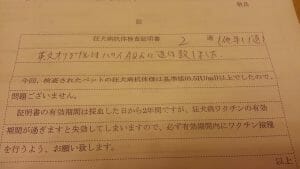 記
狂犬病抗体検査証明書 2 通
英文オリジナルはハワイAQSに送付致しました。
今回、検査されたペットの狂犬病抗体値は基準値(0.5IU/ml)以上でしたので、
問題ございません。
証明書の有効期間は採血した日から2年間ですが、狂犬病ワクチンの有効
期間が過ぎますと失効してしまいますので、必ず有効期間内にワクチン接種
を行うよう、お願い致します。
以上